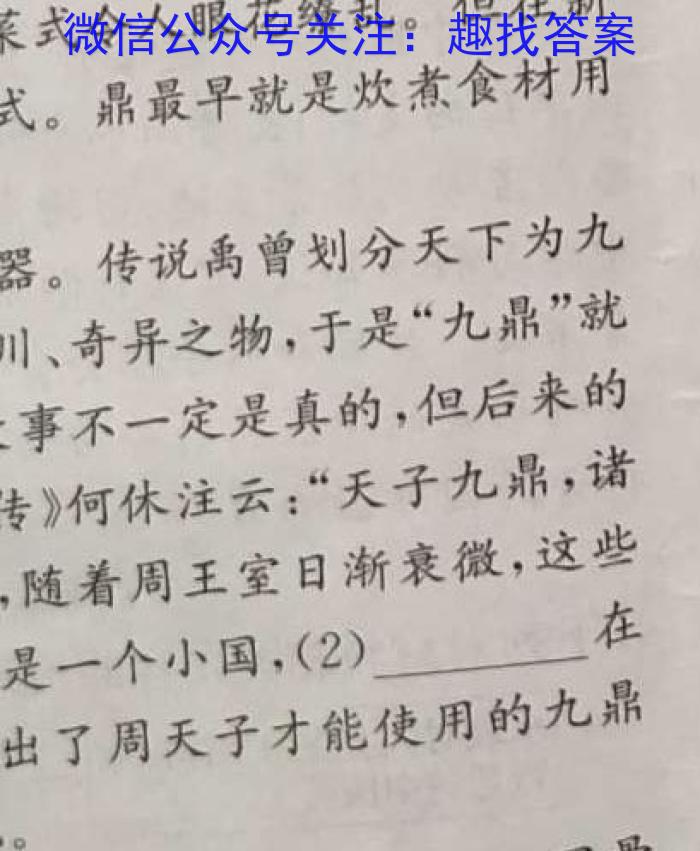 菜式令人眼花缭乱。但在制
微信公众号关注：趣找答案
式。鼎最早就是炊煮食材用
器。传说禹曾划分天下为九
川、奇异之物，于是“九鼎”就
事不一定是真的，但后来的
传》何休注云：“天子九鼎，诸
，随着周王室日渐衰微，这些
是一个小国，（2）________在
出了周天子才能使用的九鼎
。